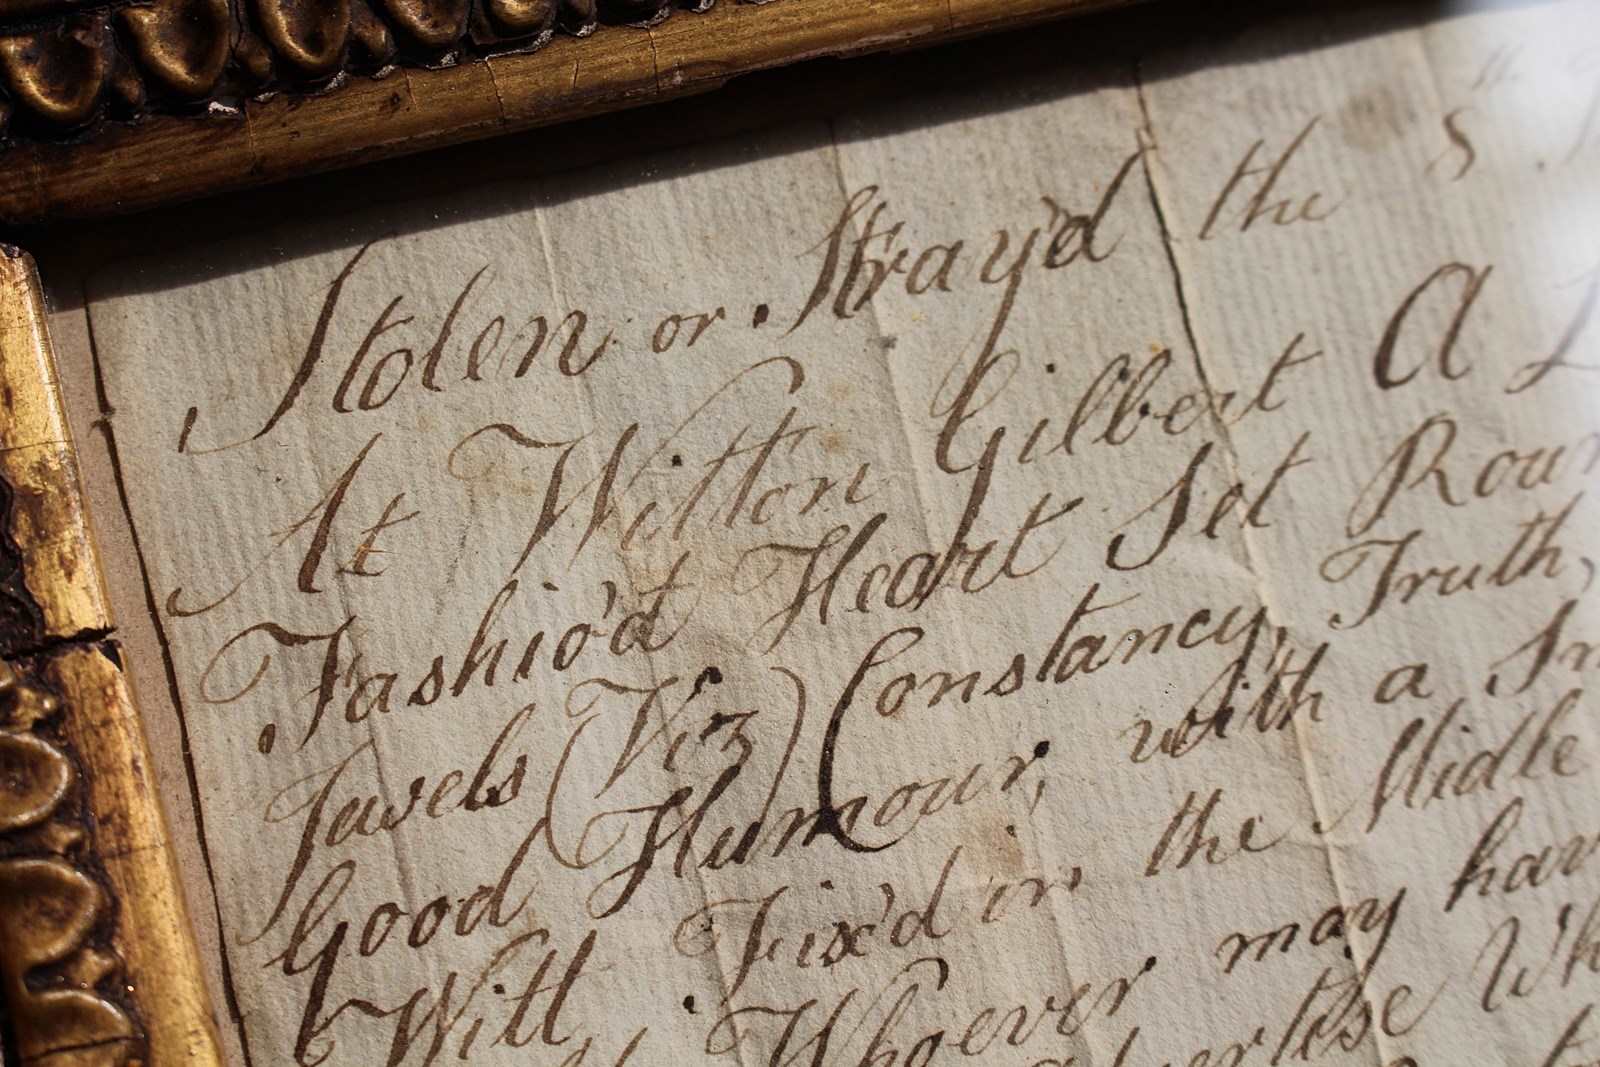 Stolen or Stray'd the 8
At Witton Gilbert A
Fashio'd Heart Set Roun
Jewels (Viz) Constancy, Truth,
Good Humour, with a
Witt Fix'd in the Midle
Whoever may hav